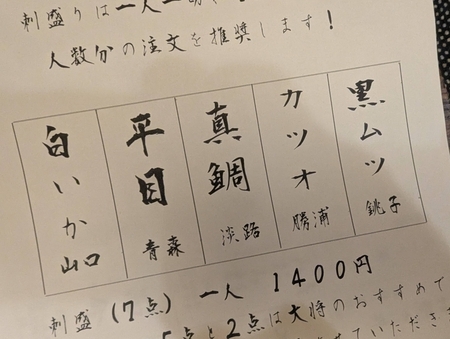 刺盛りは一人一切や
人数分の注文を推奨します!
黒ムツ 銚子
カツオ 勝浦
真鯛 淡路
平目 青森
白いか 山口
刺盛(7点) 一人 1400円
5点と2点は大将のおすすめで
せていただき